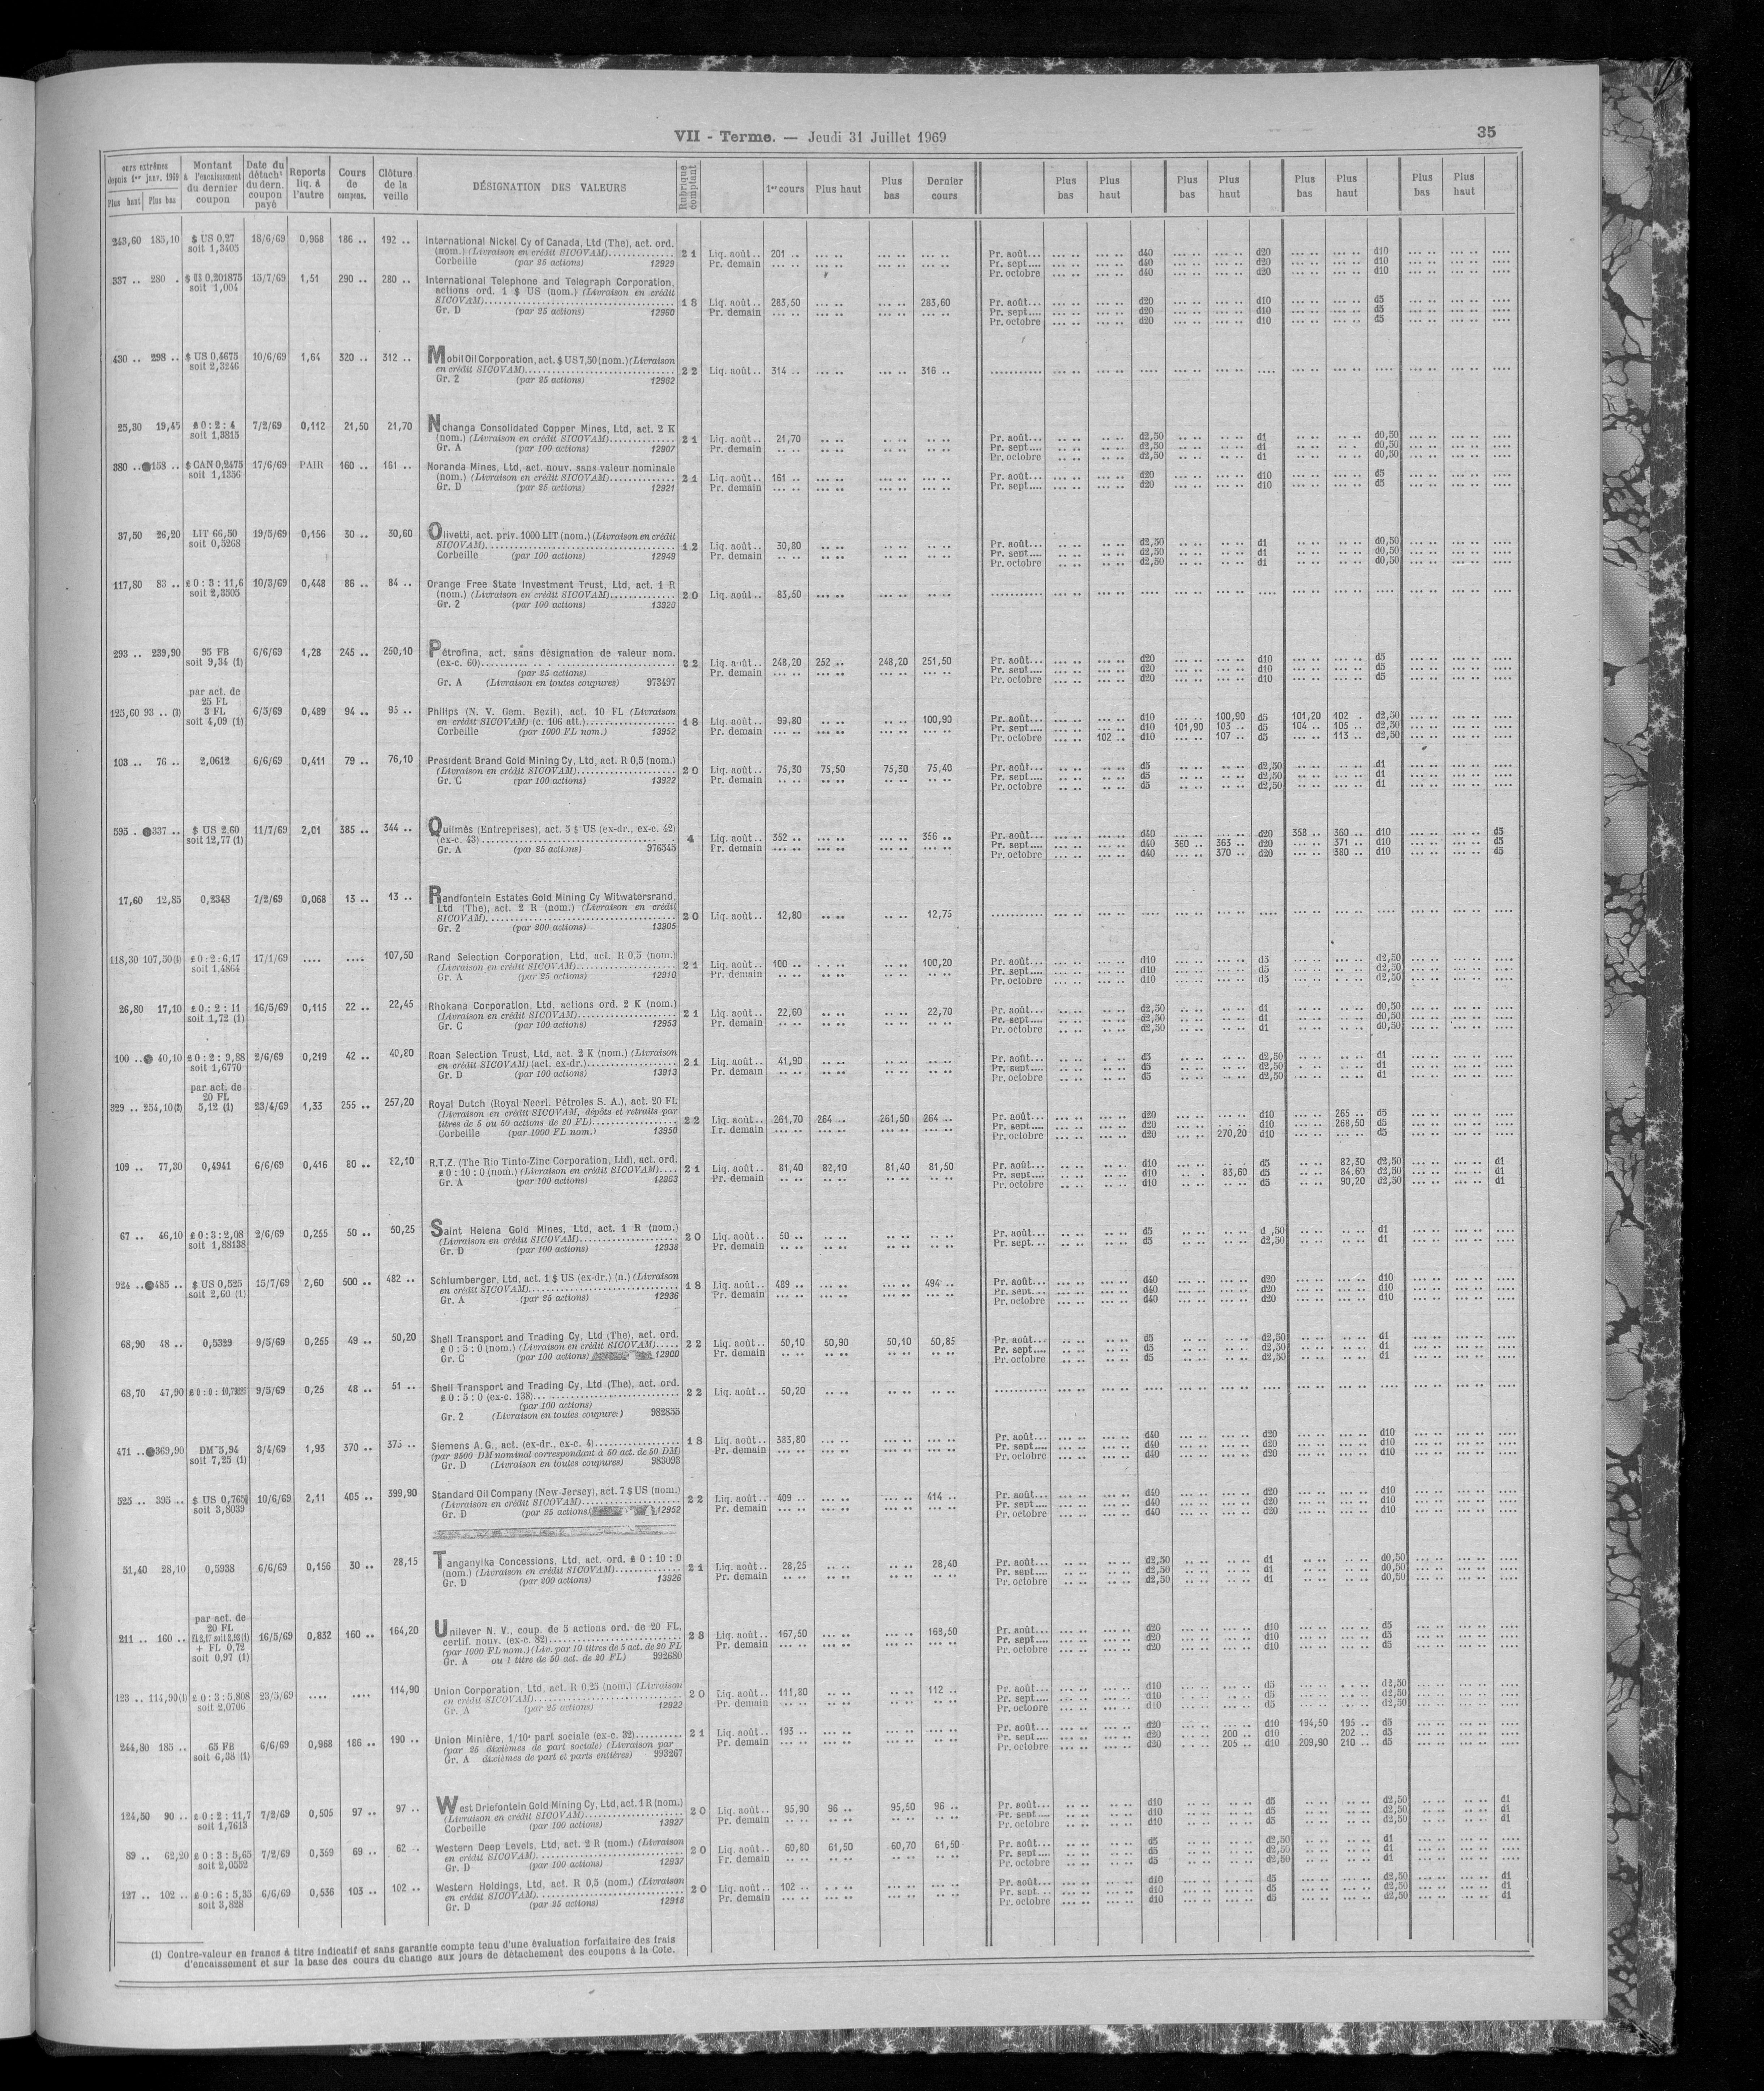 VII - Terme. — Jeudi 31 Juillet 1969
35
ours extrêmes depuis 1er janv. 1969 Plus haut Plus bas | Montant à l'encaissement du dernier coupon | Date du détacht du dern. coupon payé | Reports liq. à l'autre | Cours de compens. | Clôture de la veille | DÉSIGNATION DES VALEURS | Rubrique comptant | 1er cours | Plus haut | Plus bas | Dernier cours | Plus bas | Plus haut | Plus bas | Plus haut | Plus bas | Plus haut | Plus bas | Plus haut
243,60 185,10 $ US 0,27 18/6/69 0,968 186 .. 192 .. International Nickel Cy of Canada, Ltd (The), act. ord.
soit 1,3405 (nom.) (Livraison en crédit SICOVAM) 21 Liq. août.. 201 .. Pr. août... d40 d20 d10
Corbeille (par 25 actions) 12929 Pr. demain Pr. sept.... d40 d20 d10
Pr. octobre d40 d20 d10
337 .. 280 . $ US 0,201875 15/7/69 1,51 290 .. 280 .. International Telephone and Telegraph Corporation,
soit 1,004 actions ord. 1 $ US (nom.) (Livraison en crédit
SICOVAM) 18 Liq. août.. 283,50 283,60 Pr. août... d20 d10 d5
Gr. D (par 25 actions) 12960 Pr. demain Pr. sept.... d20 d10 d5
Pr. octobre d20 d10 d5
430 .. 298 .. $ US 0,4675 10/6/69 1,64 320 .. 312 .. Mobil Oil Corporation, act. $ US 7,50 (nom.) (Livraison
soit 2,3246 en crédit SICOVAM) 22 Liq. août.. 314 .. 316 ..
Gr. 2 (par 25 actions) 12982
25,30 19,45 £ 0 : 2 : 4 7/2/69 0,112 21,50 21,70 Nchanga Consolidated Copper Mines, Ltd, act. 2 K
soit 1,3815 (nom.) (Livraison en crédit SICOVAM) 21 Liq. août.. 21,70 Pr. août... d2,50 d1 d0,50
Gr. A (par 100 actions) 12907 Pr. demain Pr. sept.... d2,50 d1 d0,50
Pr. octobre d2,50 d1 d0,50
380 .. ●158 .. $ CAN 0,2475 17/6/69 PAIR 160 .. 161 .. Noranda Mines, Ltd, act. nouv. sans valeur nominale
soit 1,1356 (nom.) (Livraison en crédit SICOVAM) 21 Liq. août.. 161 .. Pr. août... d20 d10 d5
Gr. D (par 25 actions) 12921 Pr. demain Pr. sept.... d20 d10 d5
37,50 26,20 LIT 66,50 19/5/69 0,156 30 .. 30,60 Olivetti, act. priv. 1000 LIT (nom.) (Livraison en crédit
soit 0,5268 SICOVAM) 12 Liq. août.. 30,80 Pr. août... d2,50 d1 d0,50
Corbeille (par 100 actions) 12949 Pr. demain Pr. sept.... d2,50 d1 d0,50
Pr. octobre d2,50 d1 d0,50
117,80 83 .. £ 0 : 3 : 11,6 10/3/69 0,448 86 .. 84 .. Orange Free State Investment Trust, Ltd, act. 1 R
soit 2,3505 (nom.) (Livraison en crédit SICOVAM) 20 Liq. août.. 83,50
Gr. 2 (par 100 actions) 13920
293 .. 239,90 95 FB 6/6/69 1,28 245 .. 250,10 Pétrofina, act. sans désignation de valeur nom.
soit 9,34 (1) (ex-c. 60) 22 Liq. août.. 248,20 252 .. 248,20 251,50 Pr. août... d20 d10 d5
(par 25 actions) Pr. demain Pr. sept.... d20 d10 d5
Gr. A (Livraison en toutes coupures) 973497 Pr. octobre d20 d10 d5
par act. de
25 FL
125,60 93 .. (3) 3 FL 6/5/69 0,489 94 .. 95 .. Philips (N. V. Gem. Bezit), act. 10 FL (Livraison
soit 4,09 (1) en crédit SICOVAM) (c. 106 att.) 18 Liq. août.. 99,80 100,90 Pr. août... d10 100,90 d5 101,20 102 . d2,50
Corbeille (par 1000 FL nom.) 13952 Pr. demain Pr. sept.... d10 101,90 103 .. d5 104 .. 105 .. d2,50
Pr. octobre 102 .. d10 107 .. d5 113 .. d2,50
103 .. 76 .. 2,0612 6/6/69 0,411 79 .. 76,10 President Brand Gold Mining Cy, Ltd, act. R 0,5 (nom.)
(Livraison en crédit SICOVAM) 20 Liq. août.. 75,30 75,50 75,30 75,40 Pr. août... d5 d2,50 d1
Gr. C (par 100 actions) 13922 Pr. demain Pr. sept.... d5 d2,50 d1
Pr. octobre d5 d2,50 d1
595 . ●337 .. $ US 2,60 11/7/69 2,01 385 .. 344 .. Quilmès (Entreprises), act. 5 $ US (ex-dr., ex-c. 42)
soit 12,77 (1) (ex-c. 43) 4 Liq. août.. 352 .. 356 .. Pr. août... d40 d20 353 .. 360 .. d10 d5
Gr. A (par 25 actions) 976545 Pr. demain Pr. sept.... d40 360 .. 363 .. d20 371 .. d10 d5
Pr. octobre d40 370 .. d20 380 .. d10 d5
17,60 12,85 0,2348 7/2/69 0,068 13 .. 13 .. Randfontein Estates Gold Mining Cy Witwatersrand,
Ltd (The), act. 2 R (nom.) (Livraison en crédit
SICOVAM) 20 Liq. août.. 12,80 12,75
Gr. 2 (par 200 actions) 13905
118,30 107,50(1) £ 0 : 2 : 6,17 17/1/69 .... .... 107,50 Rand Selection Corporation, Ltd, act. R 0,5 (nom.)
soit 1,4864 (Livraison en crédit SICOVAM) 21 Liq. août.. 100 .. 100,20 Pr. août... d10 d5 d2,50
Gr. A (par 25 actions) 12910 Pr. demain Pr. sept.... d10 d5 d2,50
Pr. octobre d10 d5 d2,50
26,80 17,10 £ 0 : 2 : 11 16/5/69 0,115 22 .. 22,45 Rhokana Corporation, Ltd, actions ord. 2 K (nom.)
soit 1,72 (1) (Livraison en crédit SICOVAM) 21 Liq. août.. 22,60 22,70 Pr. août... d2,50 d1 d0,50
Gr. C (par 100 actions) 12953 Pr. demain Pr. sept.... d2,50 d1 d0,50
Pr. octobre d2,50 d1 d0,50
100 .. ● 40,10 £ 0 : 2 : 9,88 2/6/69 0,219 42 .. 40,80 Roan Selection Trust, Ltd, act. 2 K (nom.) (Livraison
soit 1,6770 en crédit SICOVAM) (act. ex-dr.) 21 Liq. août.. 41,90 Pr. août... d5 d2,50 d1
Gr. D (par 100 actions) 13913 Pr. demain Pr. sept.... d5 d2,50 d1
Pr. octobre d5 d2,50 d1
par act. de
20 FL
329 .. 254,10(3) 5,12 (1) 23/4/69 1,33 255 .. 257,20 Royal Dutch (Royal Neerl. Pétroles S. A.), act. 20 FL
(Livraison en crédit SICOVAM, dépôts et retraits par
titres de 5 ou 50 actions de 20 FL) 22 Liq. août.. 261,70 264 .. 261,50 264 .. Pr. août... d20 d10 265 .. d5
Corbeille (par 1000 FL nom.) 13950 Pr. demain Pr. sept.... d20 d10 268,50 d5
Pr. octobre d20 270,20 d10 d5
109 .. 77,30 0,4941 6/6/69 0,416 80 .. 82,10 R.T.Z. (The Rio Tinto-Zinc Corporation, Ltd), act. ord.
£ 0 : 10 : 0 (nom.) (Livraison en crédit SICOVAM) 21 Liq. août.. 81,40 82,10 81,40 81,50 Pr. août... d10 d5 82,30 d2,50 d1
Gr. A (par 100 actions) 12963 Pr. demain Pr. sept.... d10 83,60 d5 84,60 d2,50 d1
Pr. octobre d10 d5 90,20 d2,50 d1
67 .. 46,10 £ 0 : 3 : 2,08 2/6/69 0,255 50 .. 50,25 Saint Helena Gold Mines, Ltd, act. 1 R (nom.)
soit 1,88138 (Livraison en crédit SICOVAM) 20 Liq. août.. 50 .. Pr. août... d5 d ,50 d1
Gr. D (par 100 actions) 12938 Pr. demain Pr. sept.... d5 d2,50 d1
924 .. ●485 .. $ US 0,525 15/7/69 2,60 500 .. 482 .. Schlumberger, Ltd, act. 1 $ US (ex-dr.) (n.) (Livraison
soit 2,60 (1) en crédit SICOVAM) 18 Liq. août.. 489 .. 494 .. Pr. août... d40 d20 d10
Gr. A (par 25 actions) 12936 Pr. demain Pr. sept.... d40 d20 d10
Pr. octobre d40 d20 d10
68,90 48 .. 0,5329 9/5/69 0,255 49 .. 50,20 Shell Transport and Trading Cy, Ltd (The), act. ord.
£ 0 : 5 : 0 (nom.) (Livraison en crédit SICOVAM) 22 Liq. août.. 50,10 50,90 50,10 50,85 Pr. août... d5 d2,50 d1
Gr. C (par 100 actions) 12900 Pr. demain Pr. sept.... d5 d2,50 d1
Pr. octobre d5 d2,50 d1
68,70 47,90 9/5/69 0,25 48 .. 51 .. Shell Transport and Trading Cy, Ltd (The), act. ord.
£ 0 : 5 : 0 (ex-c. 138) 22 Liq. août.. 50,20
(par 100 actions)
Gr. 2 (Livraison en toutes coupures) 982855
471 .. ●369,90 DM 5,94 3/4/69 1,93 370 .. 375 .. Siemens A. G., act. (ex-dr., ex-c. 4) 18 Liq. août.. 383,80 Pr. août... d40 d20 d10
soit 7,25 (1) (par 2500 DM nominal correspondant à 50 act. de 50 DM) Pr. demain Pr. sept.... d40 d20 d10
Gr. D (Livraison en toutes coupures) 983093 Pr. octobre d40 d20 d10
525 .. 395 .. $ US 0,765 10/6/69 2,11 405 .. 399,90 Standard Oil Company (New-Jersey), act. 7 $ US (nom.)
soit 3,8039 (Livraison en crédit SICOVAM) 22 Liq. août.. 409 .. 414 .. Pr. août... d40 d20 d10
Gr. D (par 25 actions) 12952 Pr. demain Pr. sept.... d40 d20 d10
Pr. octobre d40 d20 d10
51,40 28,10 0,5938 6/6/69 0,156 30 .. 28,15 Tanganyika Concessions, Ltd, act. ord. £ 0 : 10 : 0
(nom.) (Livraison en crédit SICOVAM) 21 Liq. août.. 28,25 28,40 Pr. août... d2,50 d1 d0,50
Gr. D (par 200 actions) 13926 Pr. demain Pr. sept.... d2,50 d1 d0,50
Pr. octobre d2,50 d1 d0,50
par act. de
20 FL
211 .. 160 .. FL 2,17 soit 2,93 (1) 16/5/69 0,832 160 .. 164,20 Unilever N. V., coup. de 5 actions ord. de 20 FL,
+ FL 0,72 certif. nouv. (ex-c. 82) 23 Liq. août.. 167,50 168,50 Pr. août... d20 d10 d5
soit 0,97 (1) (par 1000 FL nom.) (Liv. par 10 titres de 5 act. de 20 FL Pr. demain Pr. sept.... d20 d10 d5
Gr. A ou 1 titre de 50 act. de 20 FL) 992680 Pr. octobre d20 d10 d5
123 .. 114,90(1) £ 0 : 3 : 5,808 23/5/69 .... .... 114,90 Union Corporation, Ltd, act. R 0,25 (nom.) (Livraison
soit 2,0706 en crédit SICOVAM) 20 Liq. août.. 111,80 112 .. Pr. août... d10 d5 d2,50
Gr. A (par 25 actions) 12922 Pr. demain Pr. sept.... d10 d5 d2,50
Pr. octobre d10 d5 d2,50
244,80 185 .. 65 FB 6/6/69 0,968 186 .. 190 .. Union Minière, 1/10e part sociale (ex-c. 32) 21 Liq. août.. 193 .. Pr. août... d20 d10 194,50 195 .. d5
soit 6,38 (1) (par 25 dixièmes de part sociale) (Livraison par Pr. demain Pr. sept.... d20 200 .. d10 202 .. d5
Gr. A dixièmes de part et parts entières) 993267 Pr. octobre d20 205 .. d10 209,90 210 .. d5
124,50 90 .. £ 0 : 2 : 11,7 7/2/69 0,505 97 .. 97 .. West Driefontein Gold Mining Cy, Ltd, act. 1 R (nom.)
soit 1,7613 (Livraison en crédit SICOVAM) 20 Liq. août.. 95,90 96 .. 95,50 96 .. Pr. août... d10 d5 d2,50 d1
Corbeille (par 100 actions) 13927 Pr. demain Pr. sept.... d10 d5 d2,50 d1
Pr. octobre d10 d5 d2,50 d1
89 .. 62,20 £ 0 : 3 : 5,65 7/2/69 0,359 69 .. 62 .. Western Deep Levels, Ltd, act. 2 R (nom.) (Livraison
soit 2,0552 en crédit SICOVAM) 20 Liq. août.. 60,80 61,50 60,70 61,50 Pr. août... d5 d2,50 d1
Gr. D (par 100 actions) 12937 Pr. demain Pr. sept.... d5 d2,50 d1
Pr. octobre d5 d2,50 d1
127 .. 102 .. £ 0 : 6 : 5,35 6/6/69 0,536 103 .. 102 .. Western Holdings, Ltd, act. R 0,5 (nom.) (Livraison
soit 3,828 en crédit SICOVAM) 20 Liq. août.. 102 .. Pr. août... d10 d5 d2,50 d1
Gr. D (par 25 actions) 12918 Pr. demain Pr. sept... d10 d5 d2,50 d1
Pr. octobre d10 d5 d2,50 d1
(1) Contre-valeur en francs à titre indicatif et sans garantie compte tenu d'une évaluation forfaitaire des frais
d'encaissement et sur la base des cours du change aux jours de détachement des coupons à la Cote.